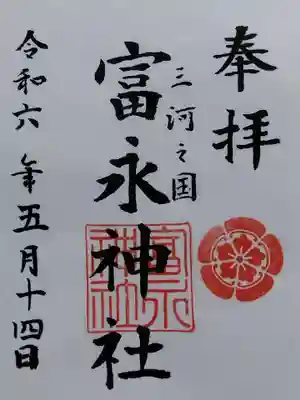 奉拝
三河之国
富永神社
令和六年五月十四日